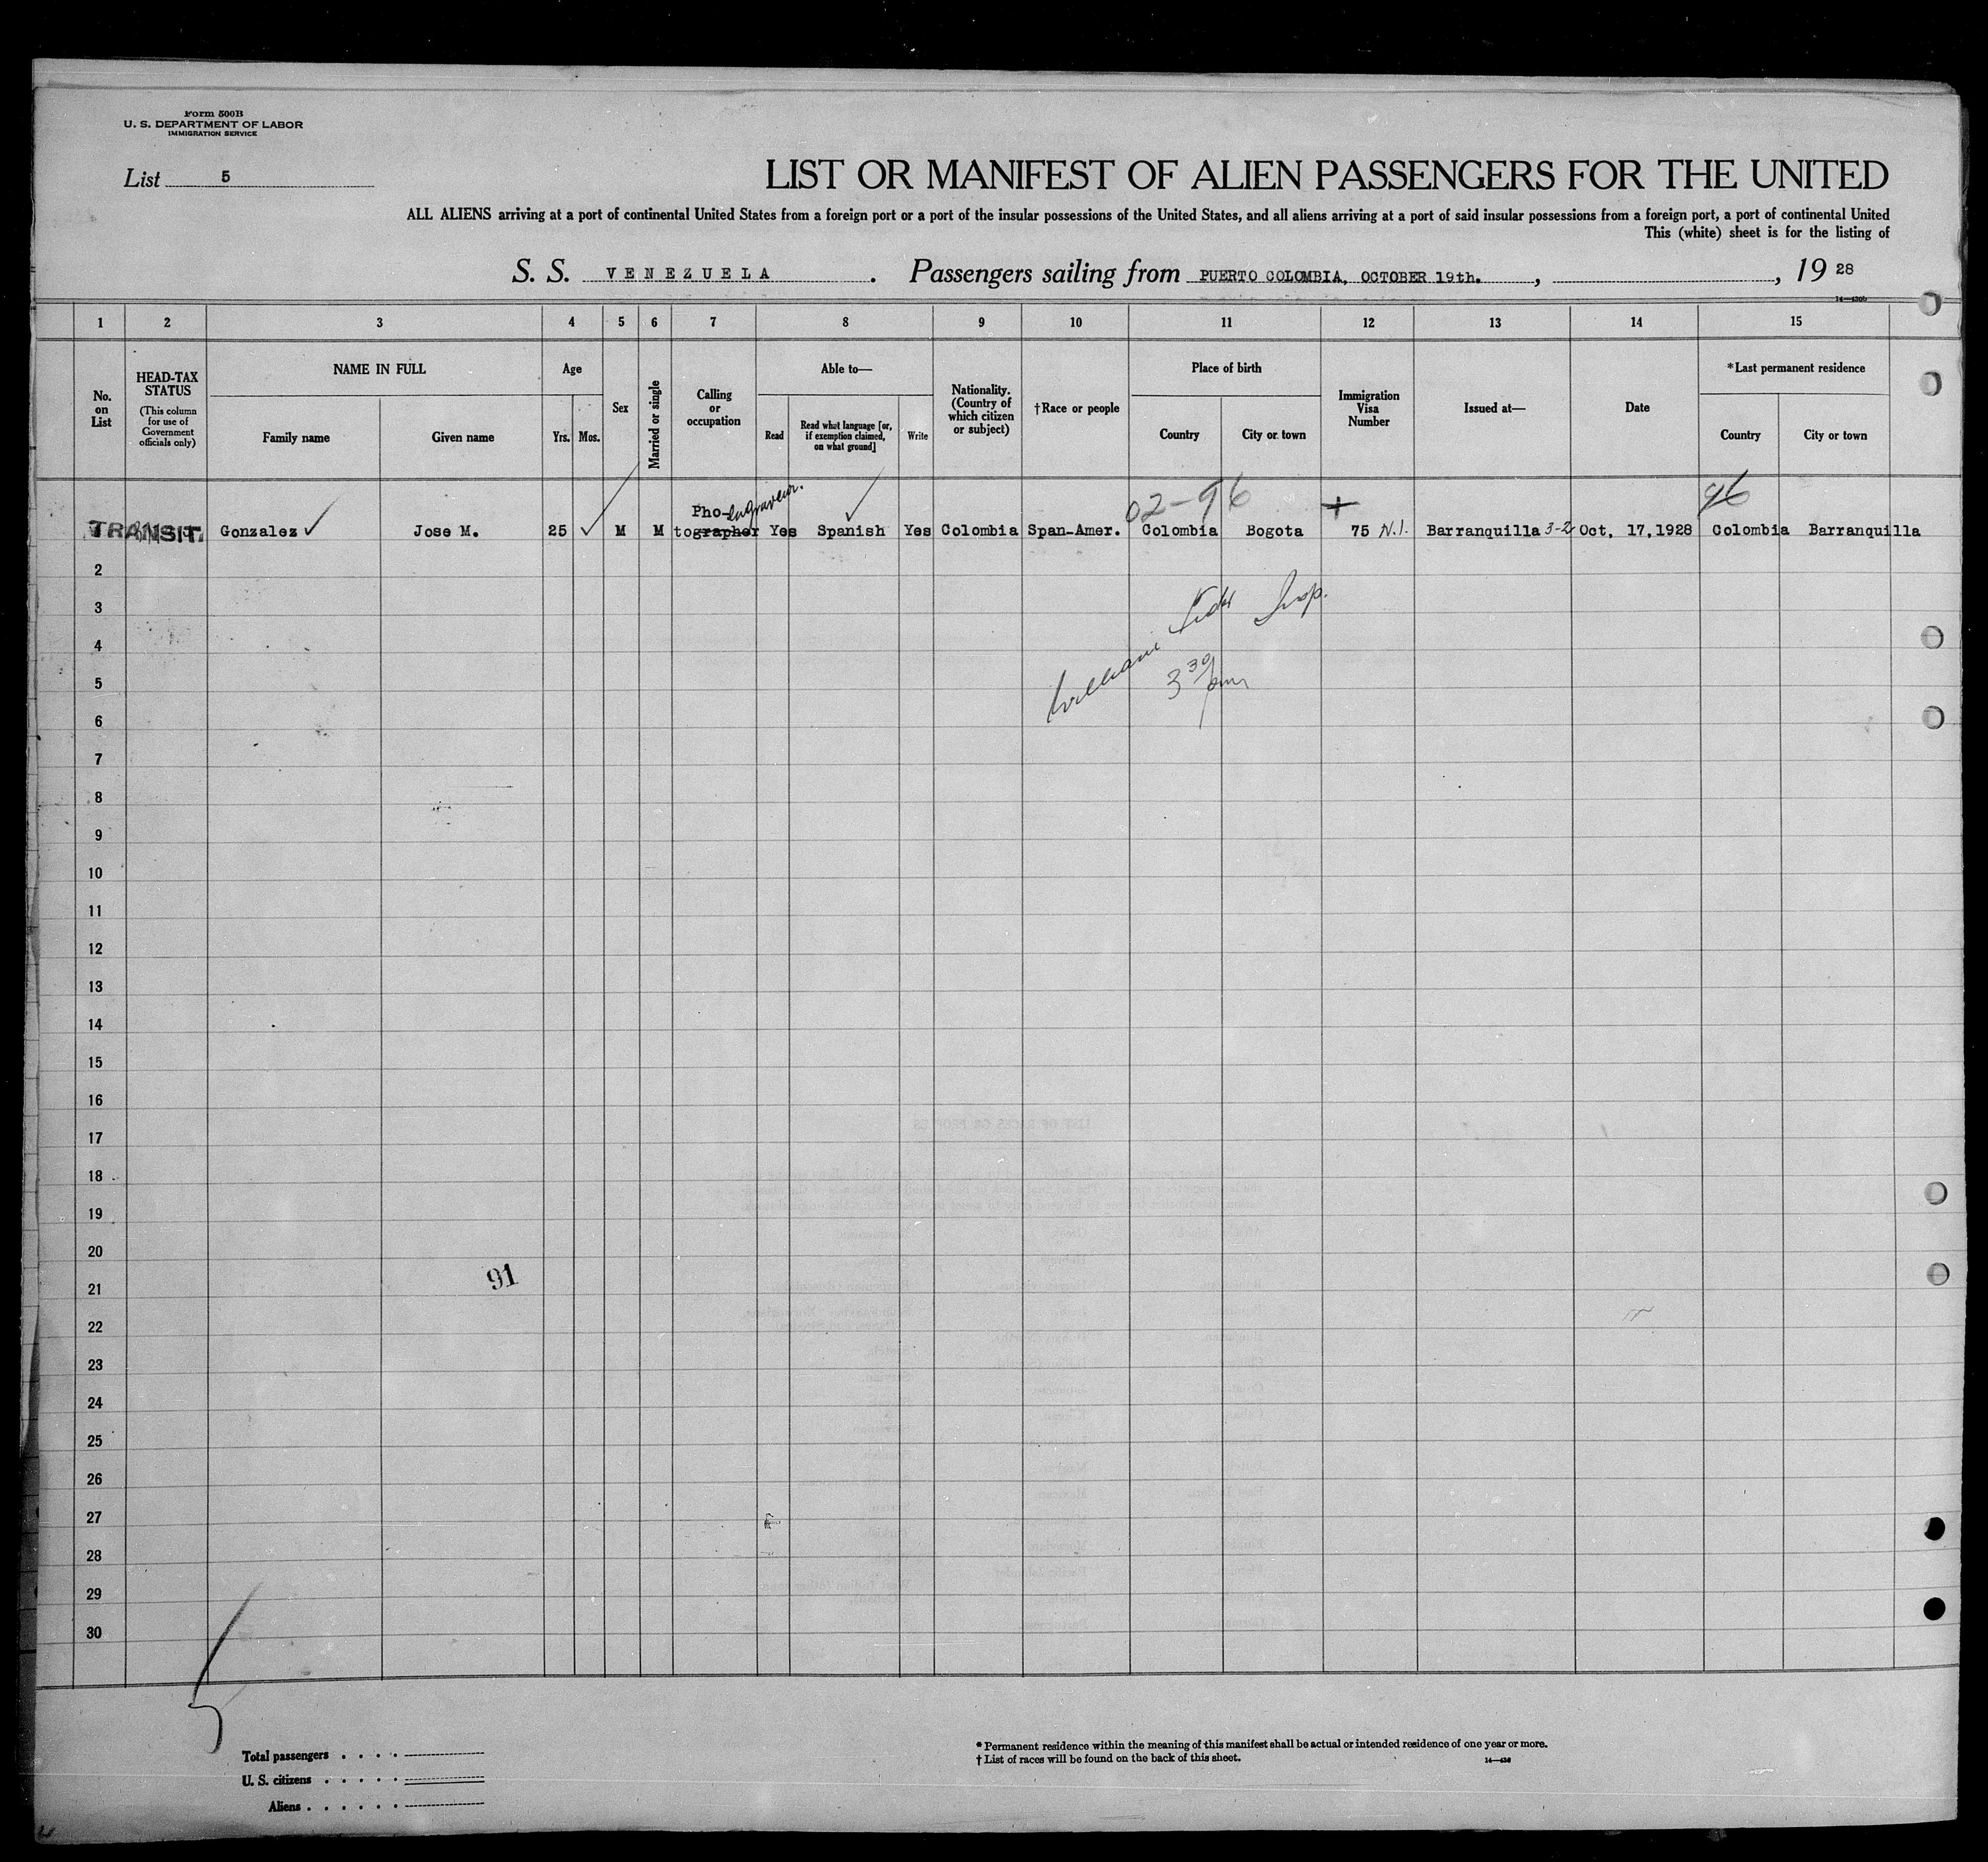 Form 500B
U. S. DEPARTMENT OF LABOR
IMMIGRATION SERVICE
List 5
LIST OR MANIFEST OF ALIEN PASSENGERS FOR THE UNITED
ALL ALIENS arriving at a port of continental United States from a foreign port or a port of the insular possessions of the United States, and all aliens arriving at a port of said insular possessions from a foreign port, a port of continental United
This (white) sheet is for the listing of
S. S. VENEZUELA. Passengers sailing from PUERTO COLOMBIA, OCTOBER 19th., , 19 28
1 2 3 4 5 6 7 8 9 10 11 12 13 14 15
No. on List
HEAD-TAX STATUS
(This column for use of Government officials only)
NAME IN FULL
Family name
Given name
Age
Yrs.
Mos.
Sex
Married or single
Calling or occupation
Able to—
Read
Read what language [or, if exemption claimed, on what ground]
Write
Nationality. (Country of which citizen or subject)
†Race or people
Place of birth
Country
City or town
Immigration Visa Number
Issued at—
Date
*Last permanent residence
Country
City or town
02-96
96
Pho-engraveur.
TRANSIT. Gonzalez Jose M. 25 M M tographer Yes Spanish Yes Colombia Span-Amer. Colombia Bogota 75 N.I. Barranquilla 3-2 Oct, 17,1928 Colombia Barranquilla
2
3
Insp.
4
William
5
3 30 pm
6
7
8
9
10
11
12
13
14
15
16
17
18
19
20
91
21
22
23
24
25
26
27
28
29
30
Total passengers . . . .
U. S. citizens . . . . .
Aliens . . . . . .
* Permanent residence within the meaning of this manifest shall be actual or intended residence of one year or more.
† List of races will be found on the back of this sheet.